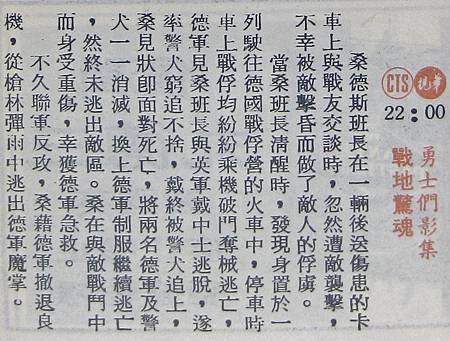 CTS 華視
22:00
勇士們影集
戰地驚魂
桑德斯班長在一輛後送傷患的卡
車上與戰友交談時，忽然遭敵襲擊，
不幸被敵擊昏而做了敵人的俘虜。
當桑班長清醒時，發現身置於一
列駛往德國戰俘營的火車中，停車時
車上戰俘均紛紛乘機破門奪械逃亡，
德軍見桑班長與英軍戴中士逃脫，遂
率警犬窮追不捨，戴終被警犬追上，
桑見狀卽面對死亡，將兩名德軍及警
犬一一消滅，換上德軍制服繼續逃亡
，然終未逃出敵區。桑在與敵戰鬥中
而身受重傷，幸獲德軍急救。
不久聯軍反攻，桑藉德軍撤退良
機，從槍林彈雨中逃出德軍魔掌。